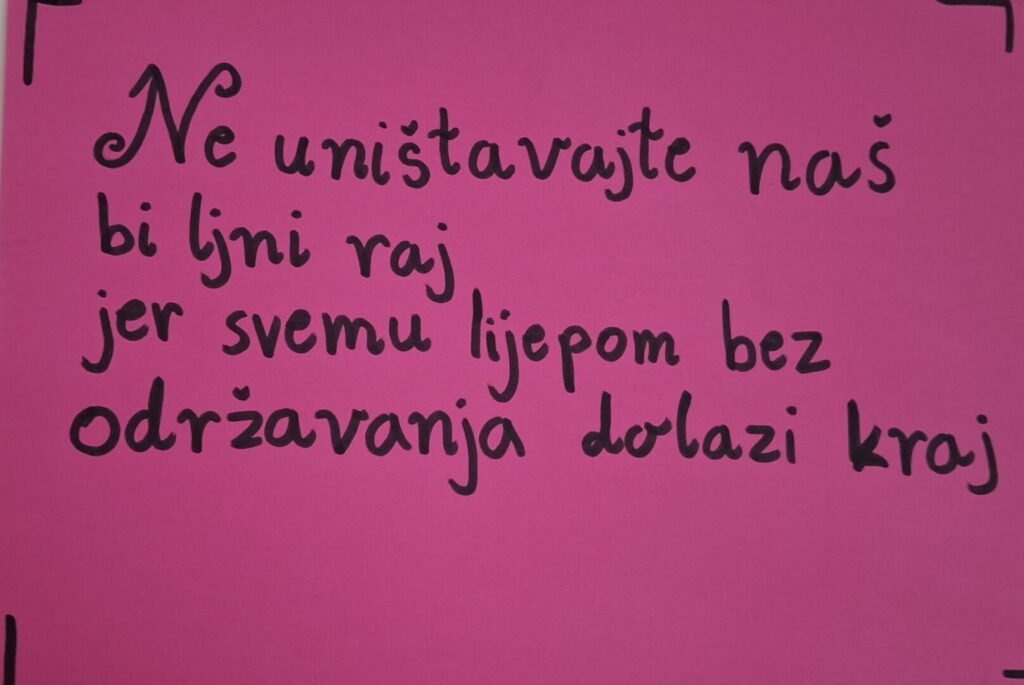 Ne uništavajte naš
bi ljni raj
jer svemu lijepom bez
održavanja dolazi kraj